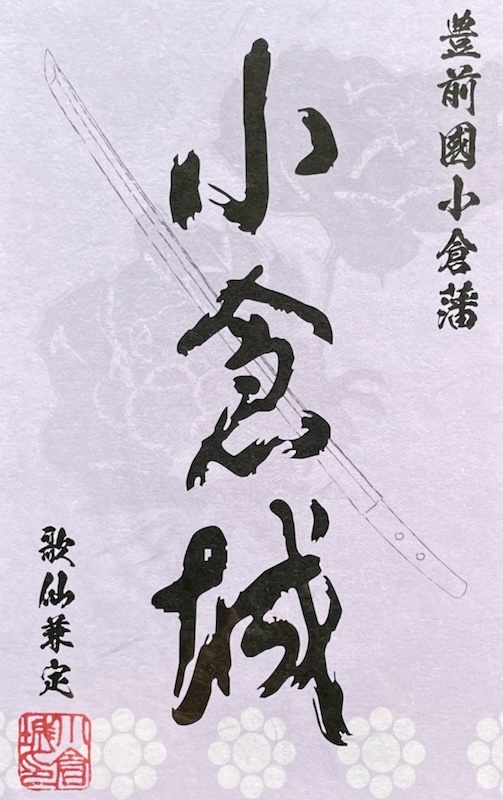 豊前國小倉藩
小倉城
歌仙兼定
小倉城印